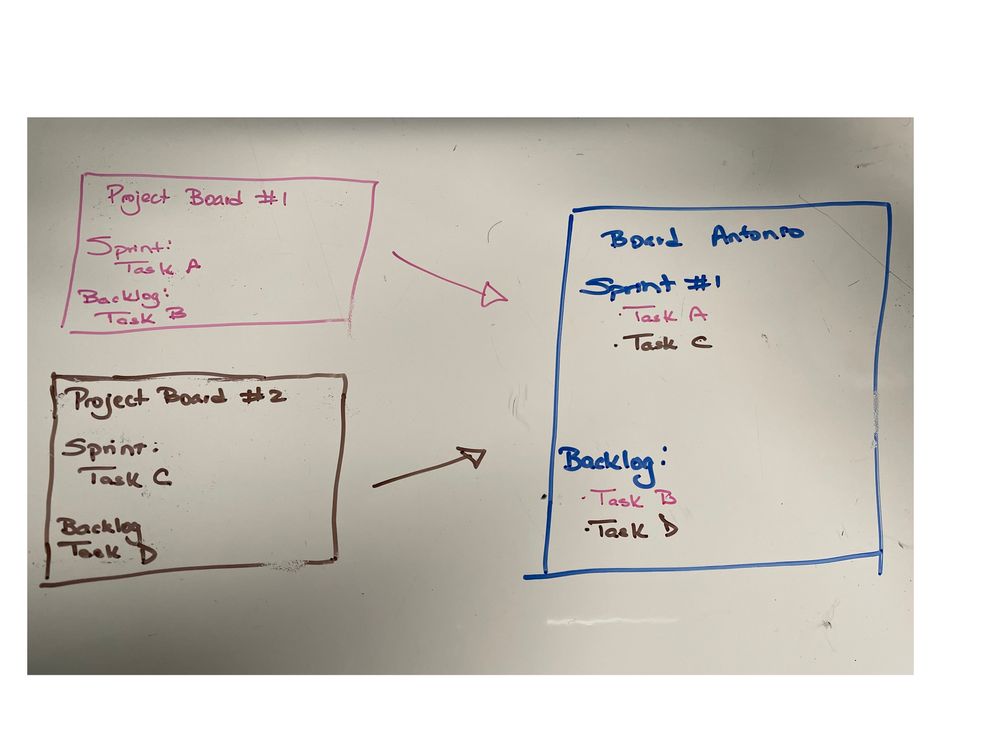 Project Board #1
Sprint:
Task A
Backlog:
Task B
Project Board #2
Sprint:
Task C
Backlog
Task D
Board Antonio
Sprint #1
· Task A
· Task C
Backlog:
· Task B
· Task D